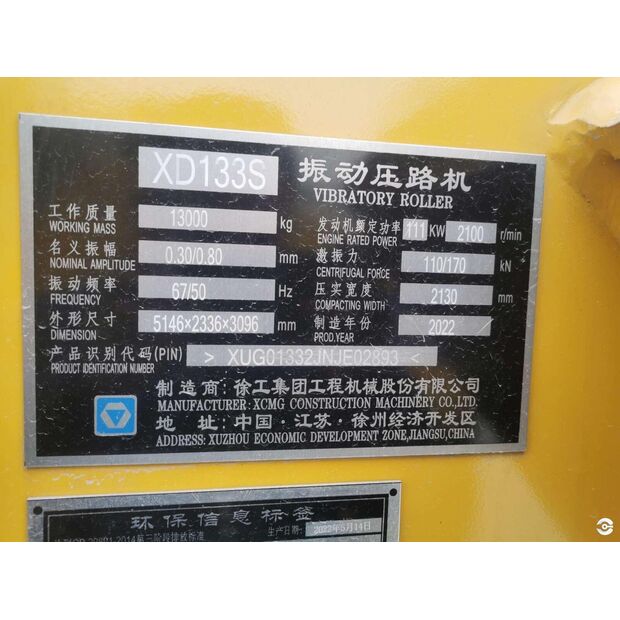 XD133S 振动压路机
VIBRATORY ROLLER
工作质量 13000 kg 发动机额定功率 111 KW 2100 r/min
WORKING MASS ENGINE RATED POWER
名义振幅 0.30/0.80 mm 激振力 110/170 kN
NOMINAL AMPLITUDE CENTRIFUGAL FORCE
振动频率 67/50 Hz 压实宽度 2130 mm
FREQUENCY COMPACTING WIDTH
外形尺寸 5146×2336×3096 mm 制造年份 2022
DIMENSION PROD.YEAR
产品识别代码(PIN) > XUG01332JNJE02893 <
PRODUCT IDENTIFICATION NUMBER
制造商:徐工集团工程机械股份有限公司
MANUFACTURER: XCMG CONSTRUCTION MACHINERY CO.,LTD.
地 址:中国·江苏·徐州经济开发区
ADDRESS: XUZHOU ECONOMIC DEVELOPMENT ZONE,JIANGSU,CHINA
环保信息标签
生产日期: 2022年5月14日
2014第三阶段排放标准